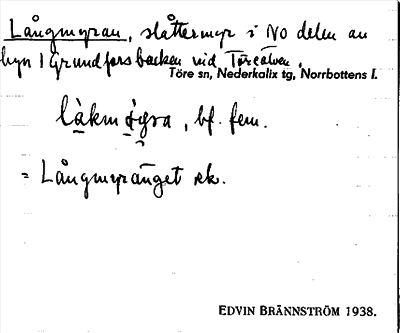 Långmyran, slåttermyr i NO delen av
byn / Grundforsbacken vid Töreälven.
Töre sn, Nederkalix tg, Norrbottens l.
làkmỳra, bf. fem.
= Långmyränget ek.
EDVIN BRÄNNSTRÖM 1938.